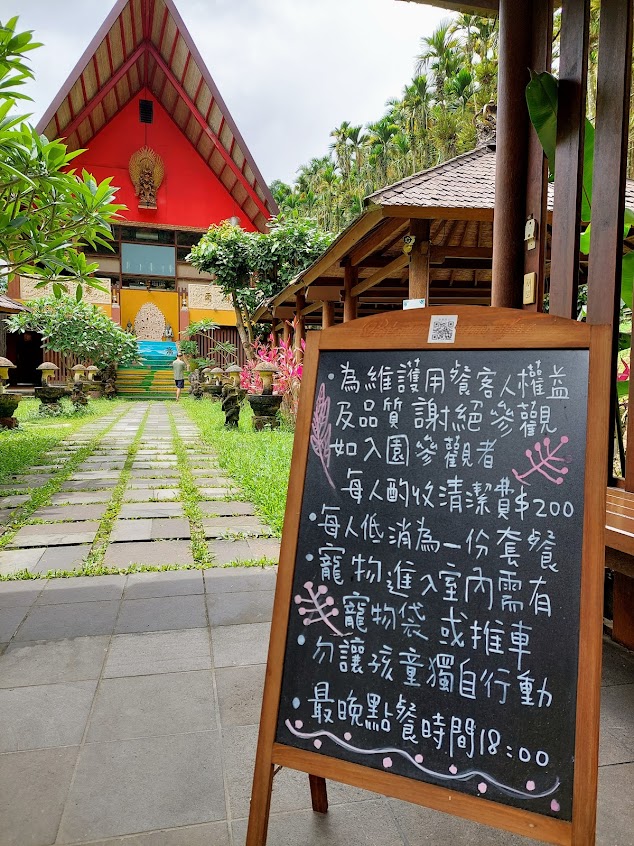 •為維護用餐客人權益
及品質謝絕參觀
如入園參觀者
每人酌收清潔費$200
•每人低消為一份套餐
•寵物進入室內需有
寵物袋或推車
•勿讓孩童獨自行動
•最晚點餐時間18:00